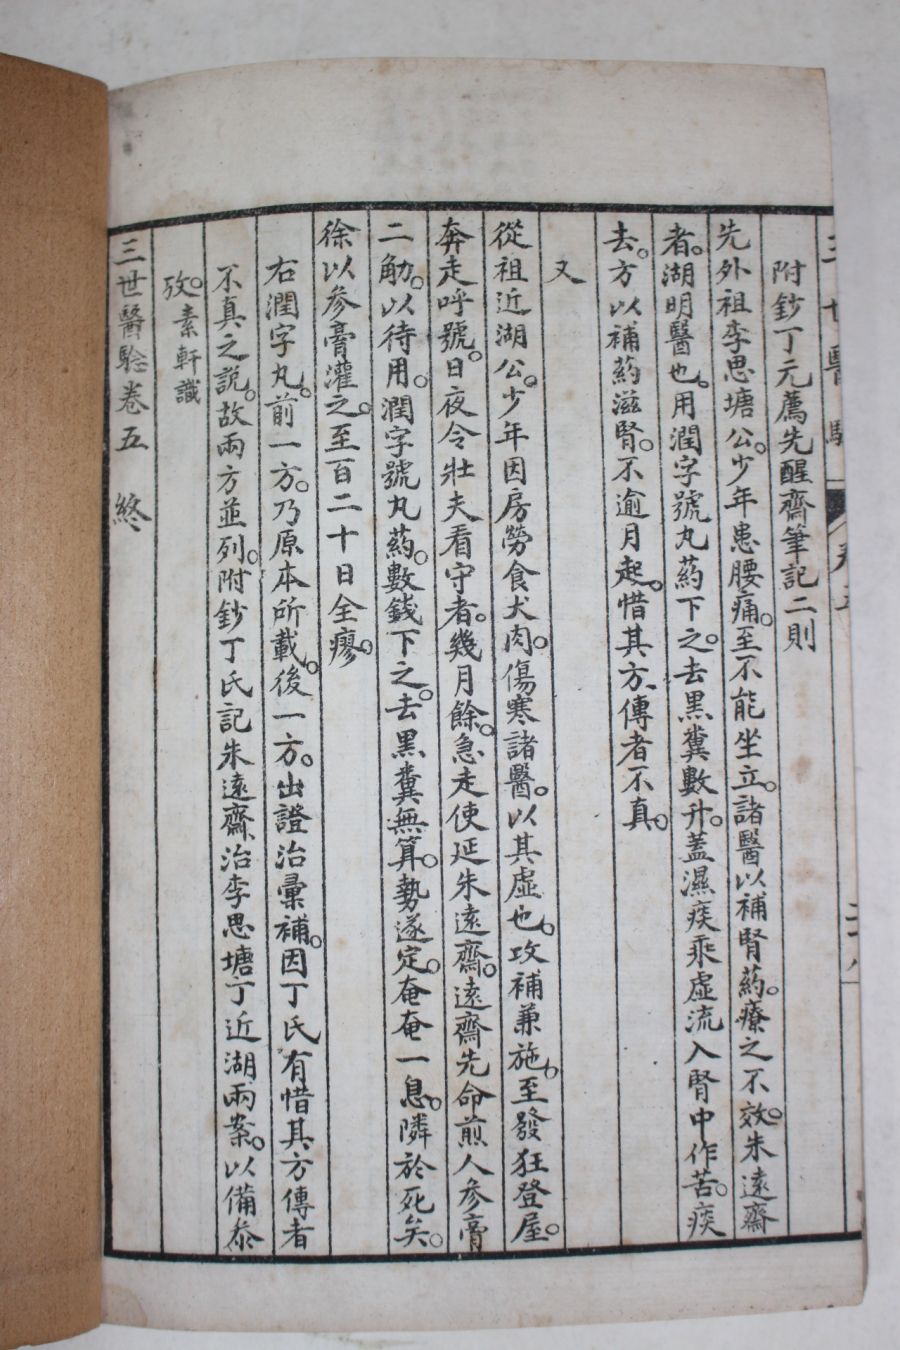 三世醫驗
卷五
附鈔丁元薦先醒齋筆記二則
先外祖李思塘公。少年患腰痛。至不能坐立。諸醫以補腎葯。療之不效。朱遠齋
者。湖明醫也。用潤字號丸葯下之。去黑糞數升。蓋濕痰乘虛流入腎中作苦。痰
去。方以補葯滋腎。不逾月起。惜其方、傳者不真。
又
從祖近湖公。少年因房勞食犬肉。傷寒諸醫。以其虛也。攻補兼施。至發狂登屋。
奔走呼號。日夜令壯夫看守者。幾月餘。急走使延朱遠齋。遠齋先命煎人參膏
二觔。以待用。潤字號丸葯。數錢下之。去黑糞無算。勢遂定。奄奄一息。隣於死矣。
徐以參膏灌之。至百二十日全瘳。
右潤字丸。前一方。乃原本所載。後一方。出證治彙補。因丁氏有惜其方傳者
不真之說。故兩方並列。附鈔丁氏記朱遠齋治李思塘丁近湖兩案。以備叅
攷。素軒識
三世醫驗卷五 終